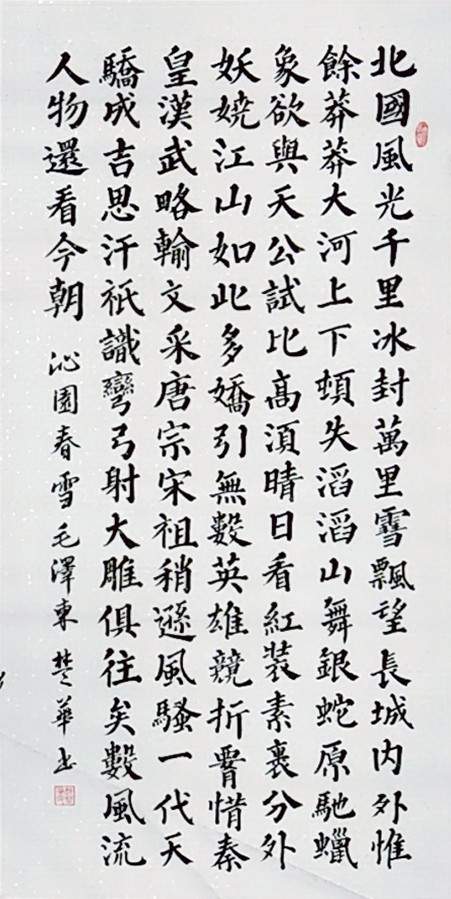 北國風光千里冰封萬里雪飄望長城內外惟
餘莽莽大河上下頓失滔滔山舞銀蛇原馳蠟
象欲與天公試比高須晴日看紅裝素裹分外
妖嬈江山如此多嬌引無數英雄競折腰惜秦
皇漢武略輸文采唐宗宋祖稍遜風騷一代天
驕成吉思汗祇識彎弓射大雕俱往矣數風流
人物還看今朝 沁園春雪毛澤東 楚華书